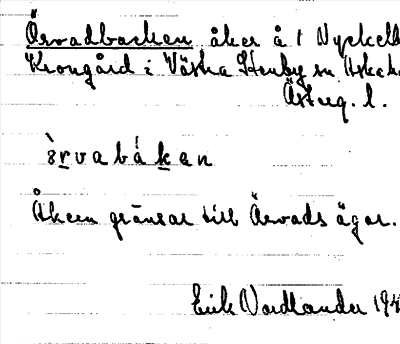 Örvadbacken åker å 1 Nyckelb
Krongård i Västra Stenby sn Aska h.
Östug. l.
ö̀rvabákan
Åkern gränsar till Örvads ägor.
Erik Nordlander 194